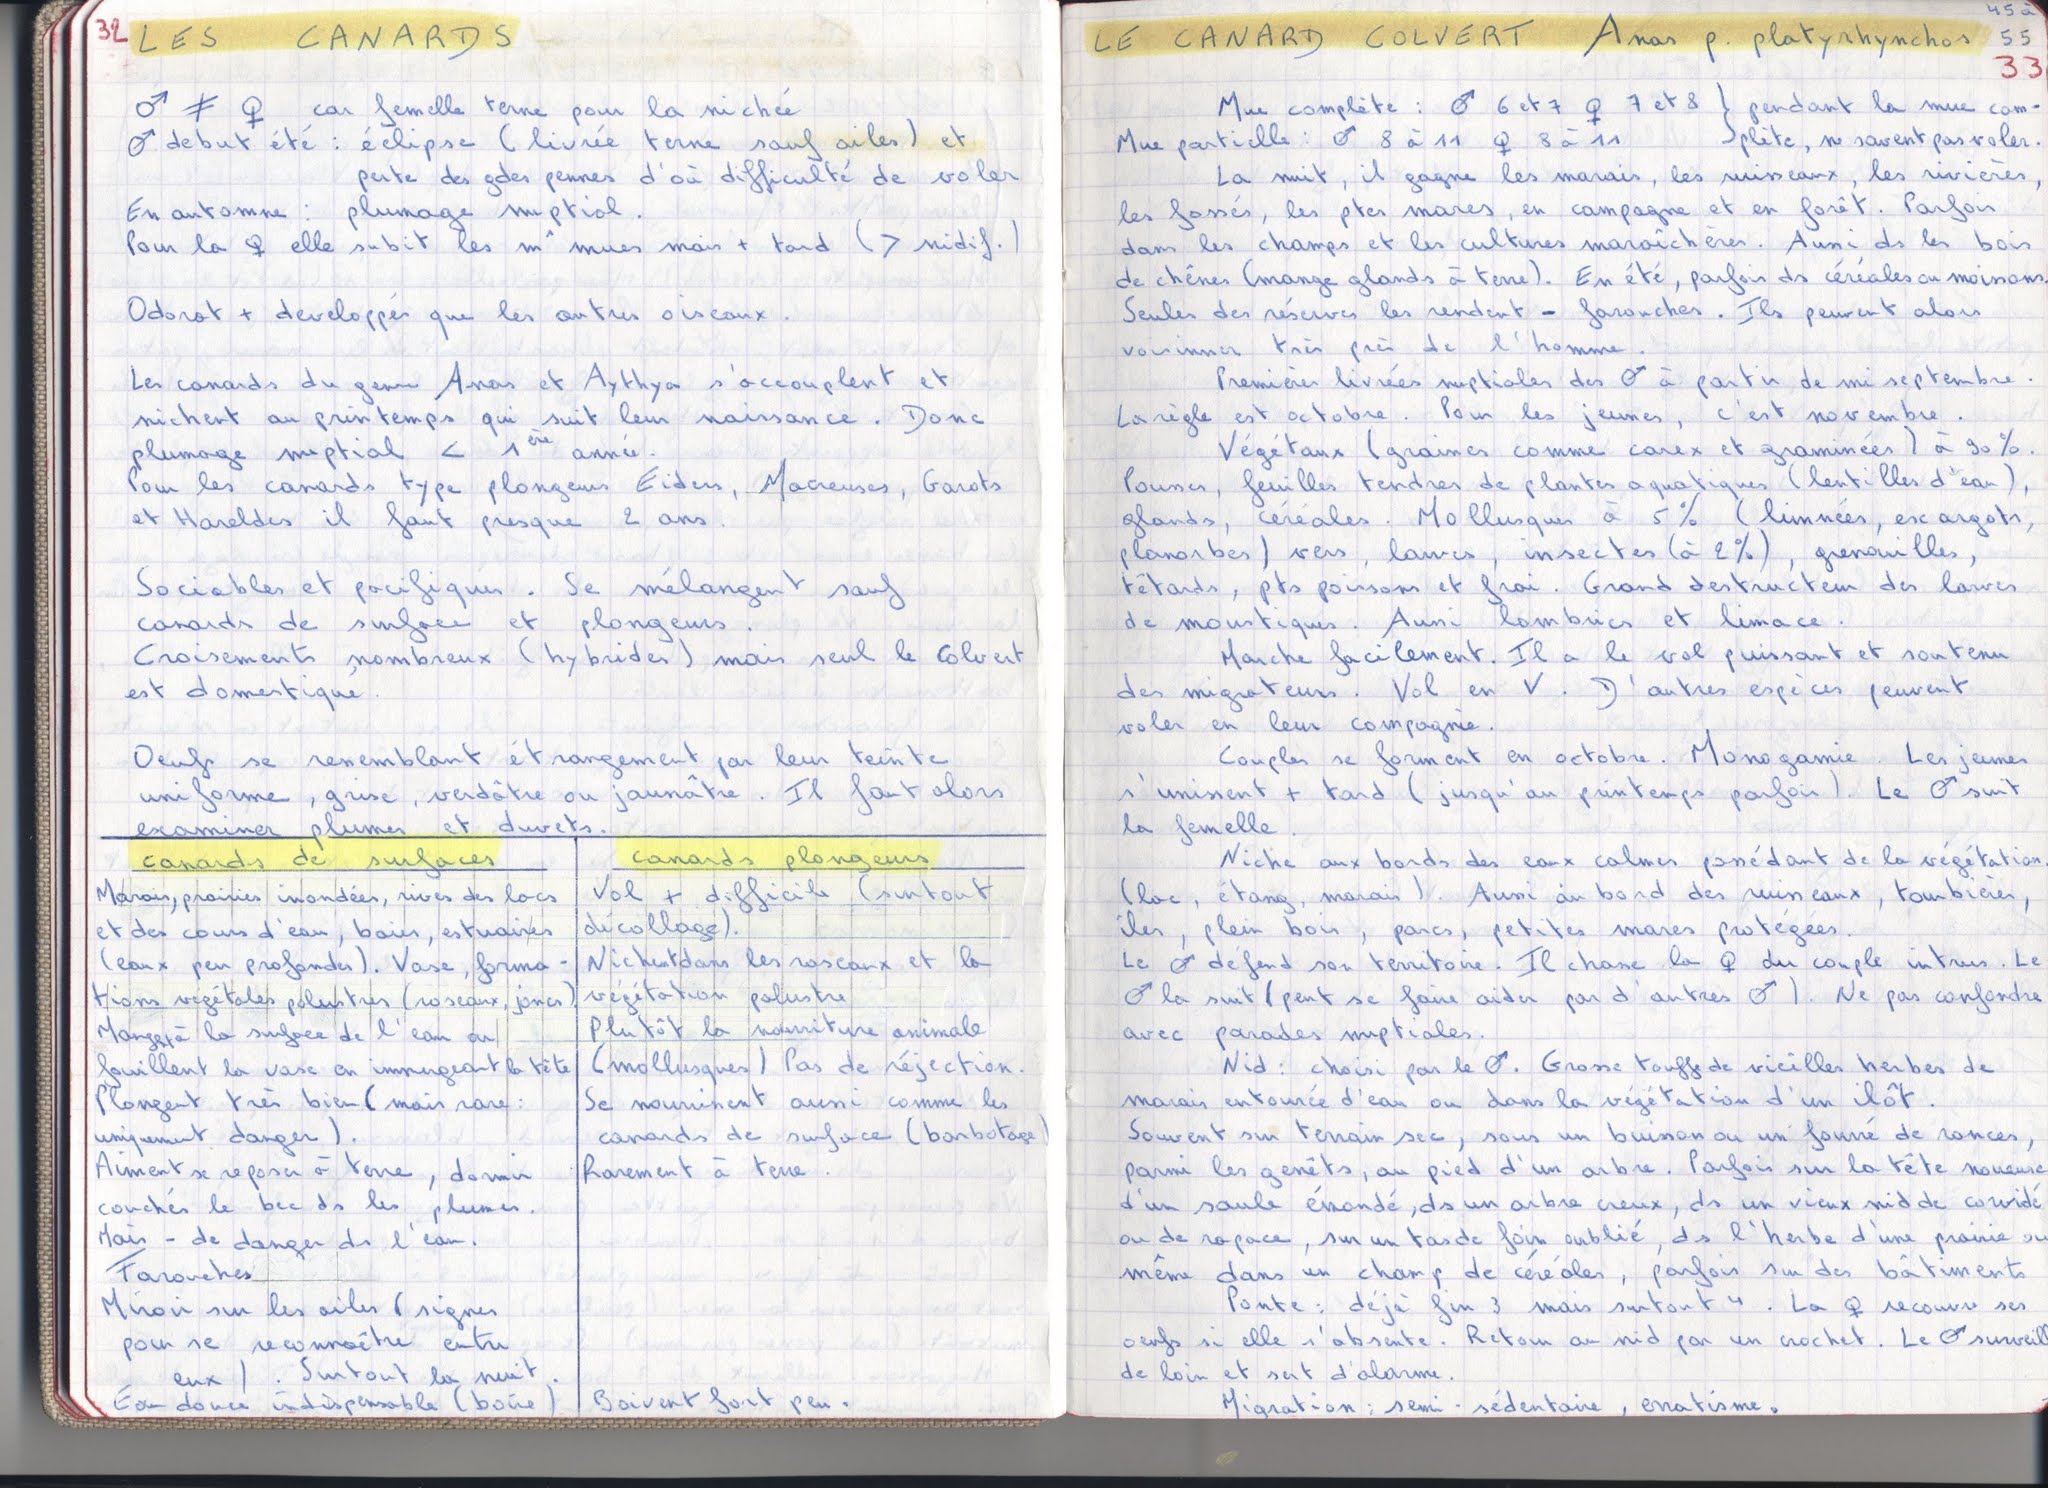 32 LES CANARDS
♂ ≠ ♀ car femelle terne pour la nichée
♂ debut été : éclipse (livrée terne sauf ailes) et
perte des gdes pennes d'où difficulté de voler
En automne : plumage nuptial.
Pour la ♀ elle subit les m^ mues mais + tard (> nidif.)
Odorat + developpés que les autres oiseaux.
Les canards du genre Anas et Aythya s'accouplent et
nichent au printemps qui suit leur naissance. Donc
plumage nuptial < 1ère année.
Pour les canards type plongeurs Eiders, Macreuses, Garots
et Hareldes il faut presque 2 ans.
Sociables et pacifiques. Se mélangent sauf
canards de surface et plongeurs.
Croisements nombreux (hybrides) mais seul le Colvert
est domestiqué.
Oeufs se ressemblant étrangement par leur teinte
uniforme, grise, verdâtre ou jaunâtre. Il faut alors
examiner plumes et duvets.
canards de surfaces
Marais, prairies inondées, rives des lacs
et des cours d'eau, baies, estuaires
(eaux peu profondes). Vase, forma-
tions végétales palustres (roseaux, joncs)
Mangent à la surface de l'eau ou
fouillent la vase en immergeant la tête
Plongent très bien (mais rare :
uniquement danger).
Aiment se reposer à terre, dormir
couchés le bec ds les plumes.
Mais - de danger ds l'eau.
Farouches
Miroir sur les ailes (signes
pour se reconnaître entre
eux). Surtout la nuit.
Eau douce indispensable (boire)
canards plongeurs
Vol + difficile (surtout
décollage).
Nichent dans les roseaux et la
végétation palustre
Plutôt la nourriture animale
(mollusques) Pas de réjection.
Se nourrissent aussi comme les
canards de surface (barbotage)
Rarement à terre.
Boivent fort peu.
LE CANARD COLVERT Anas p. platyrhynchos
45 à
55
33
Mue complète : ♂ 6 et 7 ♀ 7 et 8 } pendant la mue com-
Mue partielle : ♂ 8 à 11 ♀ 8 à 11 plète, ne savent pas voler.
La nuit, il gagne les marais, les ruisseaux, les rivières,
les fossés, les ptes mares, en campagne et en forêt. Parfois
dans les champs et les cultures maraîchères. Aussi ds les bois
de chênes (mange glands à terre). En été, parfois ds céréales ou moissons.
Seules des réserves les rendent - farouches. Ils peuvent alors
voisinner très près de l'homme.
Premières livrées nuptiales des ♂ à partir de mi septembre.
La règle est octobre. Pour les jeunes, c'est novembre.
Végétaux (graines comme carex et graminées) à 90%.
Pousses, feuilles tendres de plantes aquatiques (lentilles d'eau),
glands, céréales. Mollusques à 5% (limnées, escargots,
planorbes) vers, larves, insectes (à 2%), grenouilles,
têtards, pts poissons et frai. Grand destructeur des larves
de moustiques. Aussi lombrics et limace.
Marche facilement. Il a le vol puissant et soutenu
des migrateurs. Vol en V. D'autres espèces peuvent
voler en leur compagnie.
Couples se forment en octobre. Monogamie. Les jeunes
s'unissent + tard (jusqu'au printemps parfois). Le ♂ suit
la femelle.
Niche aux bords des eaux calmes possédant de la végétation.
(lac, étang, marais). Aussi au bord des ruisseaux, tourbières,
îles, plein bois, parcs, petites mares protégées.
Le ♂ défend son territoire. Il chasse la ♀ du couple intrus. Le
♂ la suit (peut se faire aider par d'autres ♂). Ne pas confondre
avec parades nuptiales.
Nid : choisi par le ♂. Grosse touffe de vieilles herbes de
marais entourée d'eau ou dans la végétation d'un ilôt.
Souvent sur terrain sec, sous un buisson ou un fourré de ronces,
parmi les genêts, au pied d'un arbre. Parfois sur la tête noueuse
d'un saule émondé, ds un arbre creux, ds un vieux nid de corvidé
ou de rapace, sur un tas de foin oublié, ds l'herbe d'une prairie ou
même dans un champ de céréales, parfois sur des bâtiments
Ponte : déjà fin 3 mais surtout 4. La ♀ recouvre ses
oeufs si elle s'absente. Retour au nid par un crochet. Le ♂ surveille
de loin et sert d'alarme.
Migration : semi-sédentaire, erratisme.